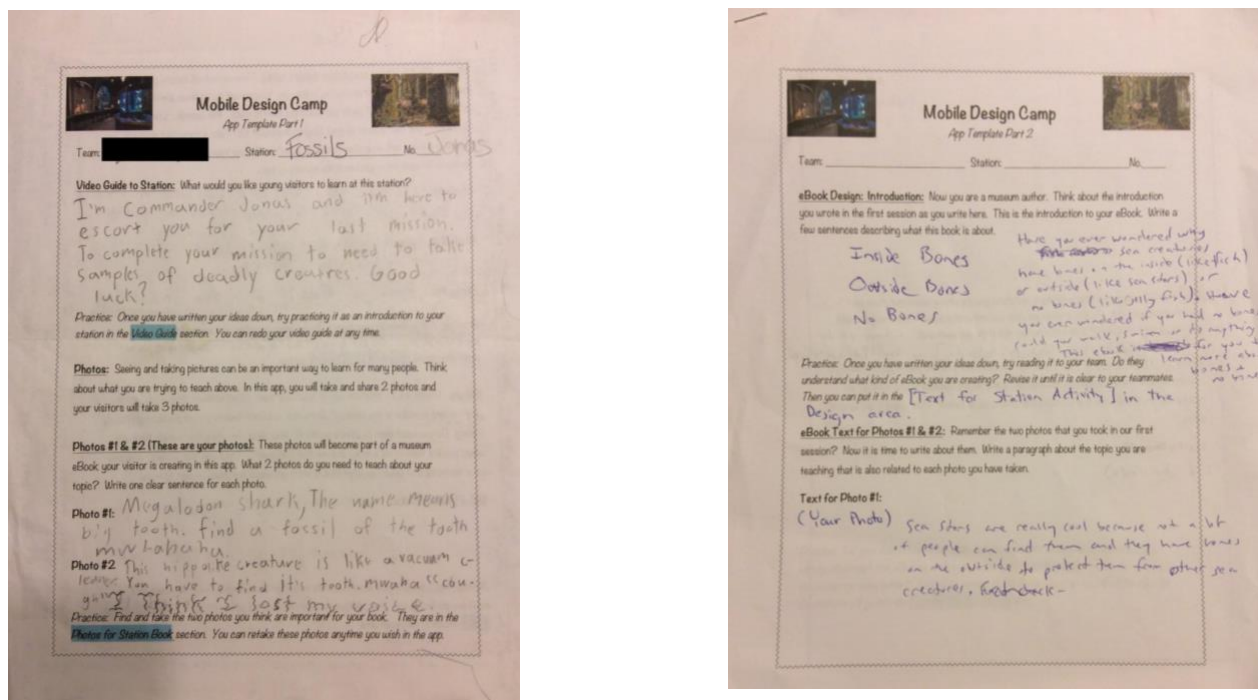 Mobile Design Camp
App Template Part 1
Team: Station: Fossils No. Jonas
Video Guide to Station: What would you like young visitors to learn at this station?
I'm Commander Jonas and I'm here to
escort you for your last mission.
To complete your mission to need to take
samples of deadly creatures. Good
luck?
Practice: Once you have written your ideas down, try practicing it as an introduction to your
station in the Video Guide section. You can redo your video guide at any time.
Photos: Seeing and taking pictures can be an important way to learn for many people. Think
about what you are trying to teach above. In this app, you will take and share 2 photos and
your visitors will take 3 photos.
Photos #1 & #2 (These are your photos): These photos will become part of a museum
eBook your visitor is creating in this app. What 2 photos do you need to teach about your
topic? Write one clear sentence for each photo.
Photo #1: Megalodon shark, The name means
big tooth. find a fossil of the tooth
mwhahaha.
Photo #2 This creature is like a vacuum c-
leaner You have to find it's tooth. mwaha "cou-
I think I lost my voice
Practice: Find and take the two photos you think are important for your book. They are in the
Photos for Station Book section. You can retake these photos anytime you wish in the app.
Mobile Design Camp
App Template Part 2
Team: Station: No.
eBook Design: Introduction: Now you are a museum author. Think about the introduction
you wrote in the first session as you write here. This is the introduction to your eBook. Write a
few sentences describing what this book is about.
Inside Bones
Outside Bones
No Bones
Have you ever wondered why
sea creatures
have bones on the inside (like fish)
or outside (like sea stars) or
no bones (like jelly fish)? Have
you ever wondered if you had no bones
could you walk, swim or do anything
This ebook is for you to
learn more about
bones &
no bone
Practice: Once you have written your ideas down, try reading it to your team. Do they
understand what kind of eBook you are creating? Revise it until it is clear to your teammates.
Then you can put it in the [Text for Station Activity] in the
Design area.
eBook Text for Photos #1 & #2: Remember the two photos that you took in our first
session? Now it is time to write about them. Write a paragraph about the topic you are
teaching that is also related to each photo you have taken.
Text for Photo #1:
(Your Photo) Sea stars are really cool because not a lot
of people can find them and they have bones
on the outside to protect them from other sea
creatures.